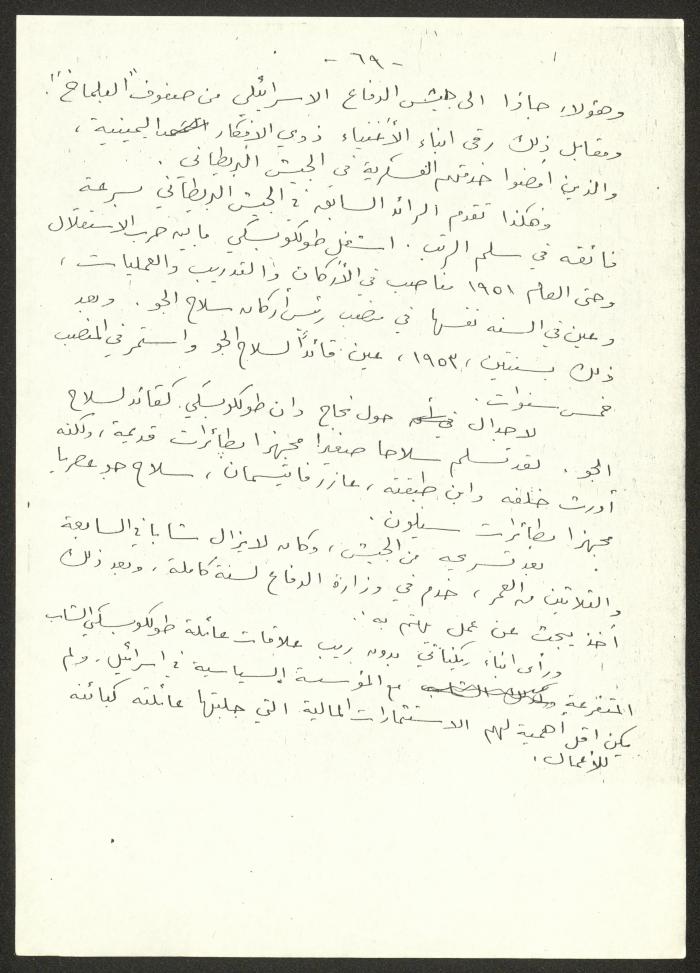 - ٦٩ -
وهؤلاء جاؤا الى جيش الدفاع الاسرائيلي من صفوف "البلماخ".
ومقابل ذلك رقى ابناء الأغنياء ذوي الافكار اليمينية ،
والذين امضوا خدمتهم العسكرية في الجيش البريطاني .
وهكذا تقدم الرائد السابق في الجيش البريطاني بسرعة
فائقه في سلم الرتب . استغل طولكوبسكي ما بين حرب الاستقلال
وحتى العام ١٩٥١ مناصب في الأركان والتدريب والعمليات ،
وعين في السنه نفسها في منصب رئيس أركان سلاح الجو . وبعد
ذلك بسنتين ، ١٩٥٣ ، عين قائدًا لسلاح الجو واستمر في المنصب
خمس سنوات .
لا جدال في حول نجاح دان طولكوبسكي كقائد لسلاح
الجو . لقد تسلم سلاحا صغيرا مجهزا بطائرات قديمة ، ولكنه
أورث خلفه وابن طبقته ، عازر فايتسمان ، سلاح جو عصريا
مجهزا بطائرات
بعد تسريحه من الجيش ، وكان لا يزال شابا في السابعة
والثلاثين من العمر ، خدم في وزارة الدفاع لسنة كاملة ، وبعد ذلك
أخذ يبحث عن عمل يهتم به .
ورأى ابناء ريكناتي بدون ريب علاقات عائلة طولكوبسكي الشاب
المتفرعة مع المؤسسة السياسية في اسرائيل . ولم
يكن اقل أهمية لهم الاستثمارات المالية التي جلبتها عائلته كبائنه
للأعمال .